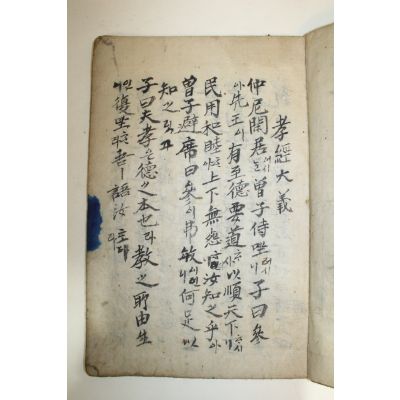 孝經大義
仲尼閒居曾子侍坐러시니子曰參
아先王이有至德要道以順天下
民用和睦上下無怨汝知之乎아
曾子避席曰參이弗敏何足以
知之
子曰夫孝는德之本也라教之所由生
이니復坐吾ㅣ語汝